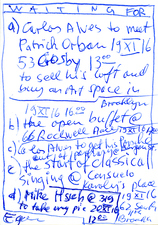 WAITING FOR
a) Carlos Alves to meet
Patrick Orban 19 XI 16
53 Crosby 13:00
to sell his loft and
buy an art space in
Brooklyn
19 XI 16 16:00
b) the open buffet @
66 Rockwell
c) Carlos Alves to get his
e) the start of Classical
Singing @ Consuelo
place
d) Mike Hsieh @ 319
to take my pic 20 XI 16
12:00